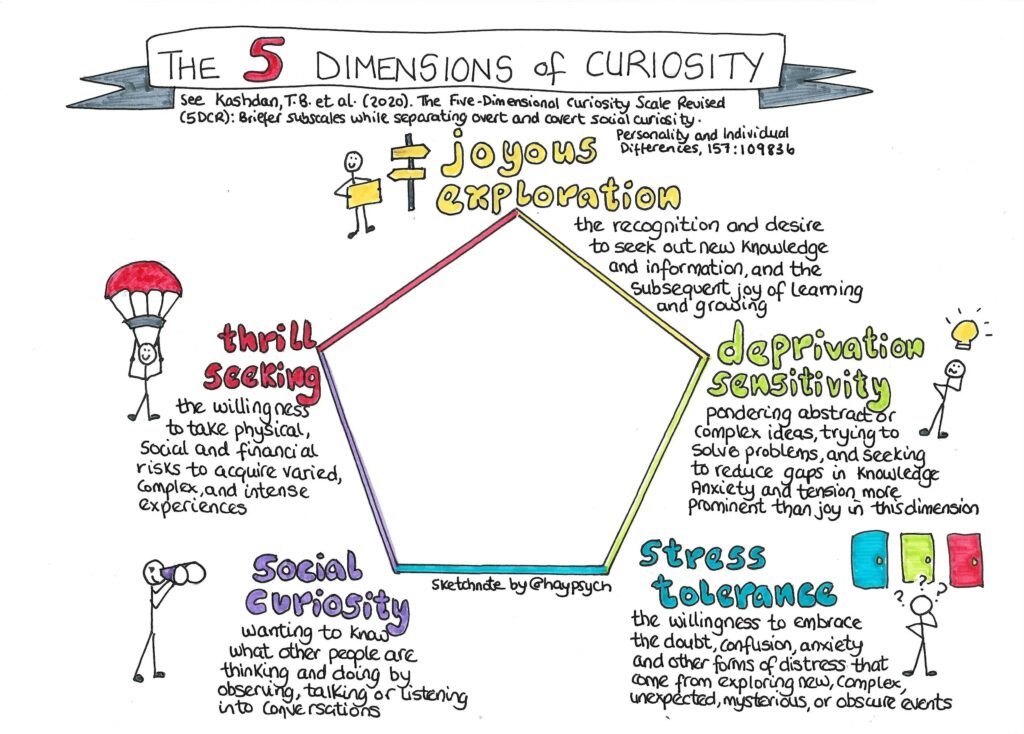 THE 5 DIMENSIONS of CURIOSITY
See Kashdan, T.B. et al. (2020). The Five-Dimensional Curiosity Scale Revised
(5DCR): Briefer subscales while separating overt and covert social curiosity.
Personality and Individual
Differences, 157:109836
joyous
exploration
the recognition and desire
to seek out new knowledge
and information, and the
subsequent joy of learning
and growing
thrill
seeking
the willingness
to take physical,
social and financial
risks to acquire varied,
complex, and intense
experiences
deprivation
sensitivity
pondering abstract or
complex ideas, trying to
solve problems, and seeking
to reduce gaps in knowledge
Anxiety and tension more
prominent than joy in this dimension
social
curiosity
wanting to know
what other people are
thinking and doing by
observing, talking or listening
into conversations
sketchnote by @haypsych
stress
tolerance
the willingness to embrace
the doubt, confusion, anxiety
and other forms of distress that
come from exploring new, complex,
unexpected, mysterious, or obscure events
? ? ? ?